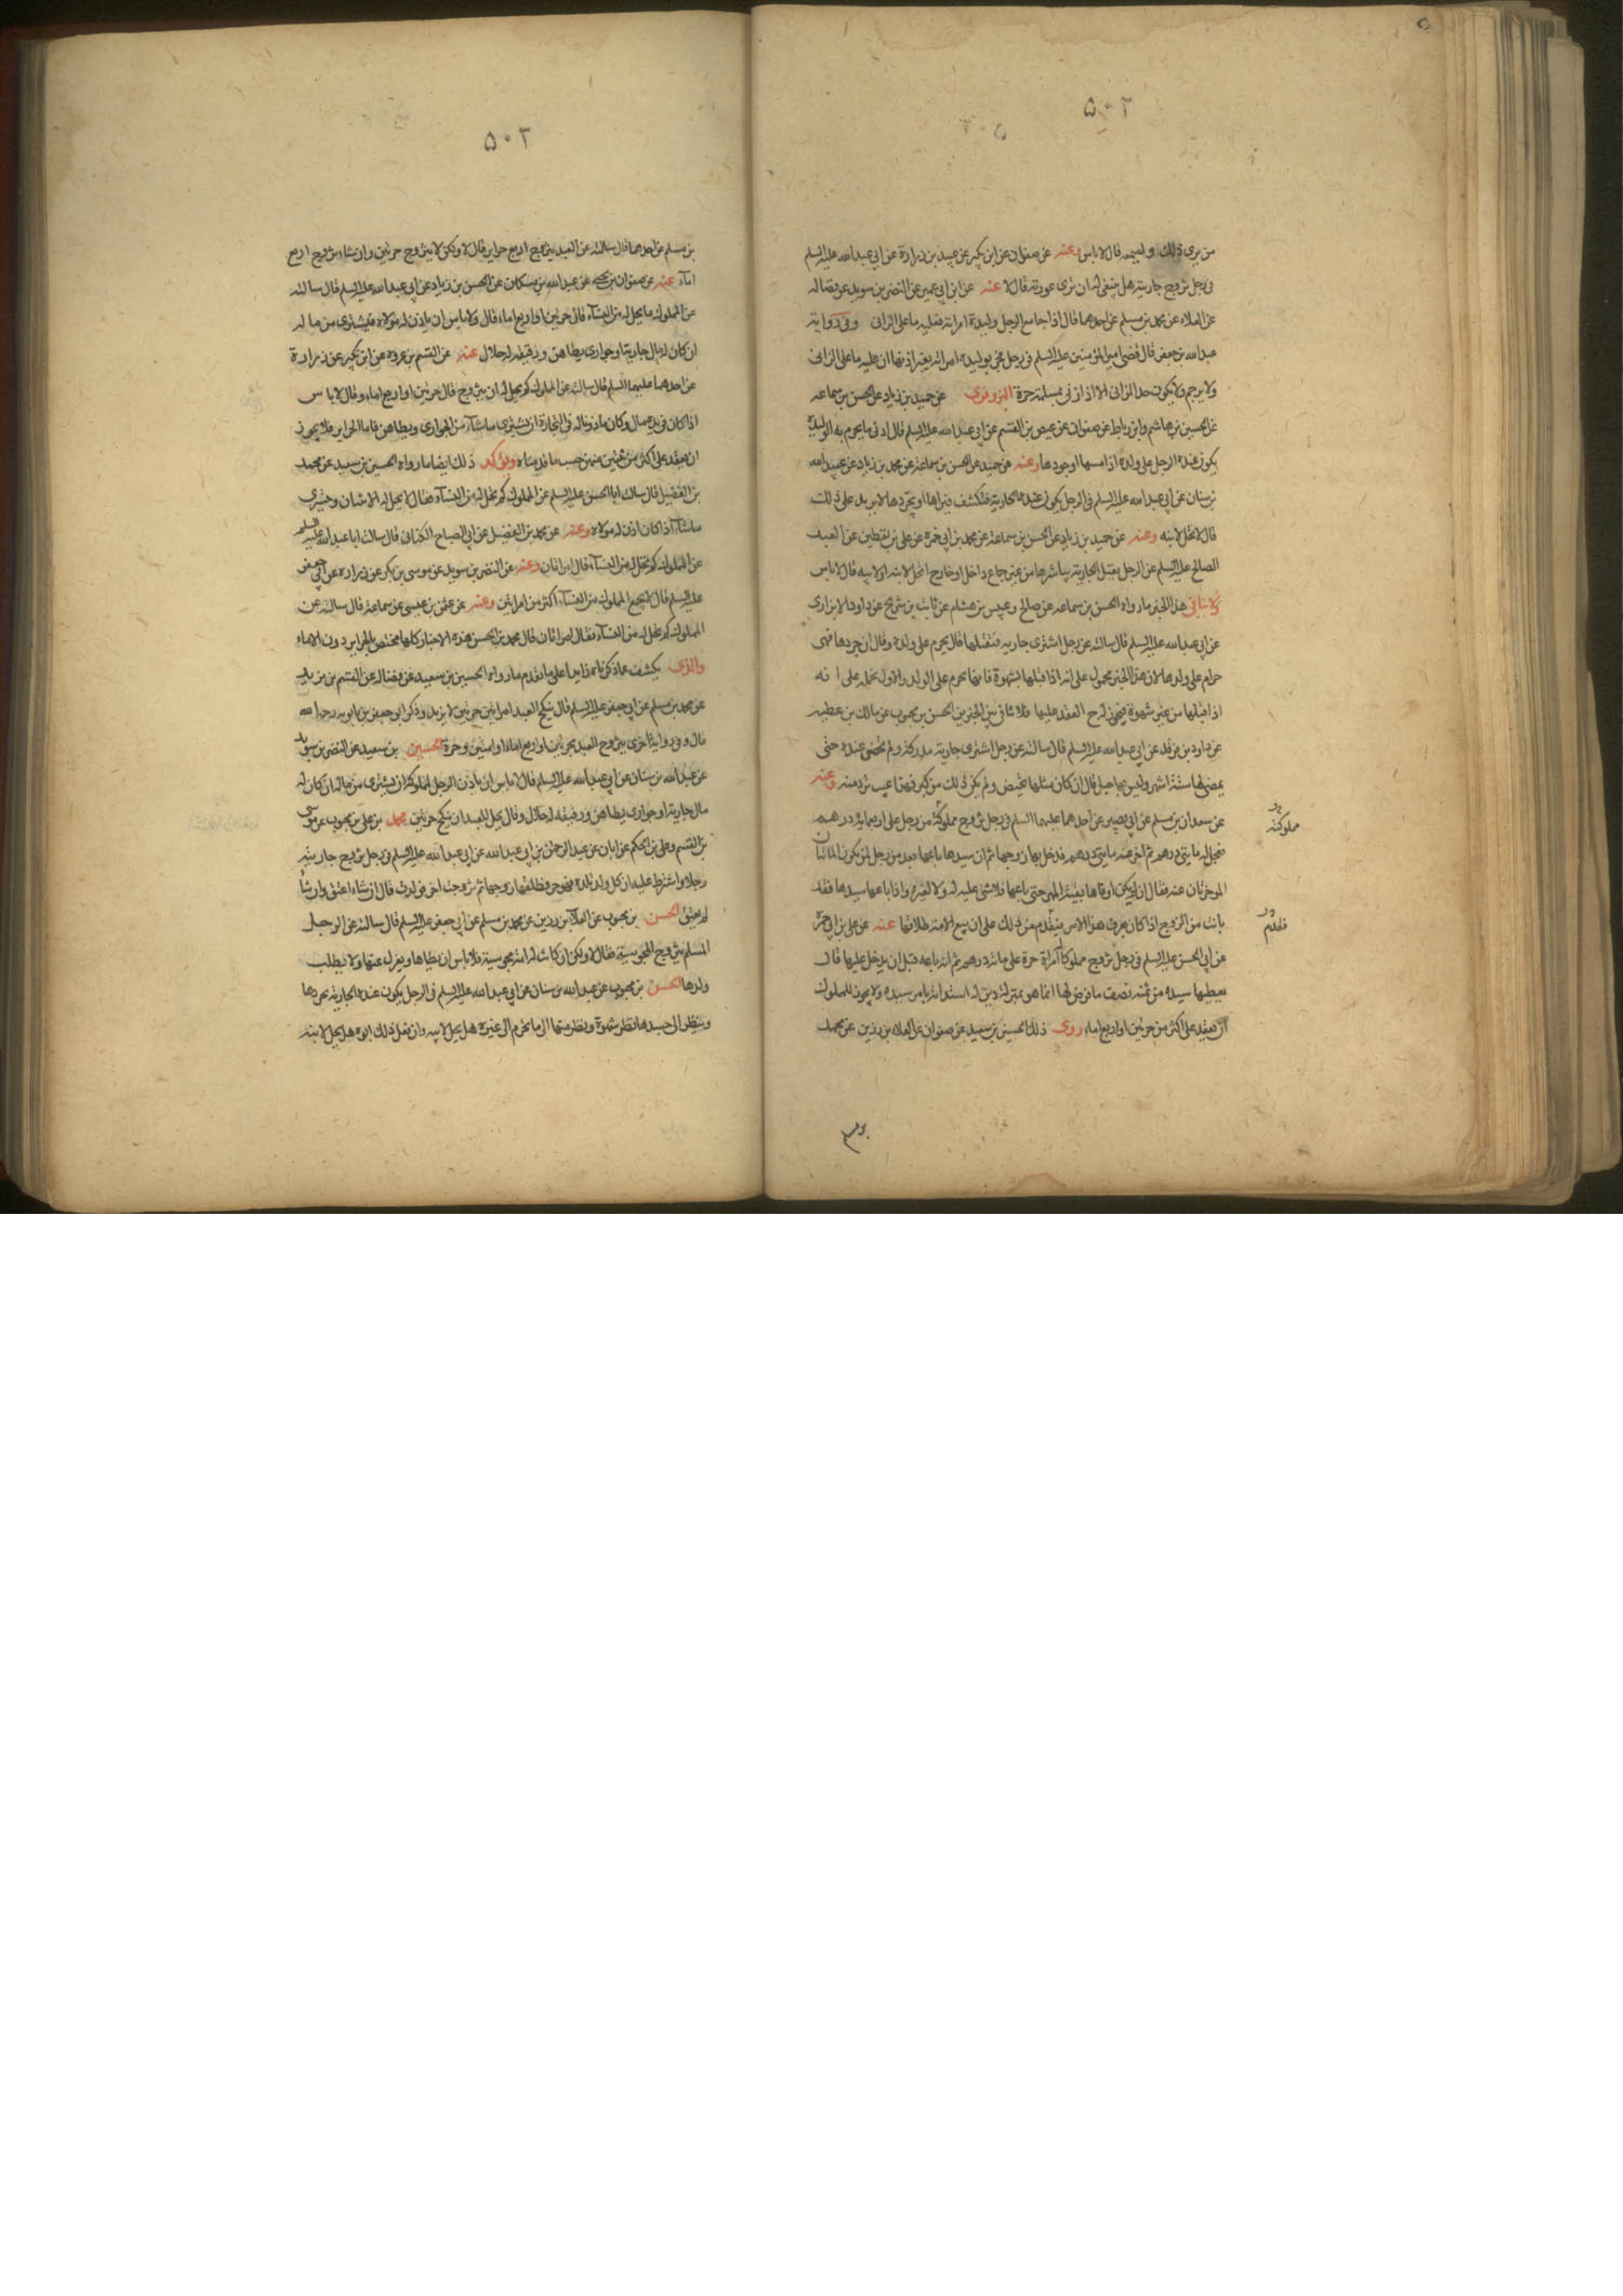 ۵۰۲
من يرى ذلك وليمه قال لا باس وعنه عن صفوان عن ابن بكير عن عبيد بن زرارة عن ابي عبدالله عليه السلم
في رجل تزوج جاريته هل ينبغي له ان ترى عورته قال لا عنه عن ابن ابي عمير عن النضر بن سويد عن فضاله
عن العلاء عن محمد بن مسلم عن احدهما قال اذا جامع الرجل وليدة امراته فعليه ما على الزاني وفي رواية
عبدالله بن جعفر قال قضى امير المؤمنين عليه السلم في رجل بوليدة امراته بغير اذنها ان عليه ما على الزاني
ولا يرجم ولا يكون حد الزاني الا اذا زنى بمسلمة حرة البزوفرى عن حميد بن زياد عن الحسن بن سماعه
عن الحسين بن هاشم وابن رباط عن صفوان عن عيص بن القسم عن ابي عبدالله عليه السلم قال ادنى ما يحرم به الوليدة
يكون عنده الرجل على ولده اذا مسها او جردها وعنه عن حميد عن الحسن بن سماعة عن محمد بن زياد عن عبدالله
بن سنان عن ابي عبدالله عليه السلم في الرجل يكون عنده الجارية فتكشف فيراها او يجردها لا يزيد على ذلك
قال لا تحل لابنه وعنه عن حميد بن زياد عن الحسن بن سماعة عن محمد بن ابي حمزة عن علي بن يقطين عن العبد
الصالح عليه السلم عن الرجل يقبل الجارية يباشرها من غير جماع داخل او خارج اتحل لابنه او لابيه قال لا باس
ولا ينافي هذا الخبر ما رواه الحسن بن سماعه عن صالح وعبيس بن هشام عن ثابت بن شريح عن داود الابزارى
عن ابي عبدالله عليه السلم قال سالته عن رجل اشترى جارية فقبلها قال يحرم على ولده وقال ان جردها فهى
حرام على ولده لان هذا الخبر محمول على انه اذا قبلها بشهوة فانها تحرم على الولد والاول نحمله على انه
اذا قبلها من غير شهوة فيجوز له ح العقد عليها فلا تنافي بين الخبرين الحسن بن محبوب عن مالك بن عطيه
عن داود بن فرقد عن ابي عبدالله عليه السلم قال سالته عن رجل اشترى جارية مدركة ولم تحض عنده حتى
يمضى لها ستة اشهر وليس بها حبل قال ان كان مثلها تحيض ولم يكن ذلك من كبر فهذا عيب ترد منه وعنه
عن سعدان بن مسلم عن ابي بصير عن احدهما عليهما السلم في رجل تزوج مملوكة من رجل على اربعماية درهم
فعجل له مايتى درهم ثم اخر عنه مايتى درهم فدخل بها زوجها ثم ان سيدها باعها بعد من رجل لمن يكون المائتان
الموخرتان عنه فقال ان لم يكن اوفاها بقية المهر حتى باعها فلا شئ عليه له ولا لغيره واذا باعها سيدها فقد
بانت من الزوج اذا كان يعرف هذا الامر فيقدم من ذلك على ان بيع الامة طلاقها عنه عن علي بن ابي حمزة
عن ابي الحسن عليه السلم في رجل تزوج مملوكا امراة حرة على مائة درهم ثم انه باعه قبل ان يدخل عليها قال
يعطيها سيده من ثمنه نصف ما فرض لها انما هو بمنزلة دين له استدانه بامر سيده ولا يجوز للمملوك
ان يعقد على اكثر من حرتين او اربع اماء روى ذلك الحسين بن سعيد عن صفوان عن العلاء بن رزين عن محمد
مملوكته
فقدم
بن مسلم
۵۰۳
بن مسلم عن احدهما قال سالته عن العبد يتزوج اربع حراير قال لا ولكن لا يتزوج حرتين وان شاء تزوج اربع
اماء عنه عن صفوان بن يحيى عن عبدالله بن مسكان عن الحسن بن زياد عن ابي عبدالله عليه السلم قال سالته
عن المملوك ما يحل له من النساء قال حرتين او اربع اماء قال ولا باس ان ياذن له مولاه فيشترى من ماله
ان كان له مال جارية او جوارى يطاهن ورقيقه له حلال عنه عن القسم بن عروه عن ابن بكير عن زرارة
عن احدهما عليهما السلم قال سالته عن المملوك كم يحل له ان يتزوج قال حرتين او اربع اماء وقال لا باس
اذا كان في يده مال وكان ماذونا له في التجارة ان يشترى ما شاء من الجوارى ويطاهن فاما الحراير فلا يجوز
ان يعقد على اكثر من ثنتين منهن حسب ما قدمناه ويؤكد ذلك ايضا ما رواه الحسين بن سعيد عن محمد
بن الفضيل قال سالت ابا الحسن عليه السلم عن المملوك كم تحل له من النساء فقال لا يحل له الا ثنتان ويتسرى
ما شاء اذا كان اذن له مولاه وعنه عن محمد بن الفضيل عن ابي الصباح الكناني قال سالت ابا عبدالله عليه السلم
عن المملوك كم تحل له من النساء قال امراتان وعنه عن النضر بن سويد عن موسى بن بكر عن زراره عن ابي جعفر
عليه السلم قال لا يجمع المملوك من النساء اكثر من امراتين وعنه عن عثمن بن عيسى عن سماعة قال سالته عن
المملوك كم تحل له من النساء فقال امراتان قال محمد بن الحسن هذه الاخبار كلها مختص بالحراير دون الاماء
والذى يكشف عما ذكرناه زايدا على ما تقدم ما رواه الحسين بن سعيد عن فضاله عن القسم بن بريد
عن محمد بن مسلم عن ابي جعفر عليه السلم قال ينكح العبد امراتين حرتين لا يزيد وذكر ابو جعفر بن بابويه رحمه الله
قال وفي رواية اخرى يتزوج العبد بحرتين او اربع اماء او امتين وحرة الحسين بن سعيد عن النضر بن سويد
عن عبدالله بن سنان عن ابي عبدالله عليه السلم قال لا باس ان ياذن الرجل لمملوكه ان يشترى من ماله ان كان له
مال جارية او جوارى يطاهن ورقيقه له حلال وقال يحل للعبد ان ينكح حرتين محمد بن علي بن محبوب عن موسى
بن القسم وعلي بن الحكم عن ابان عن عبد الرحمن بن ابي عبدالله عن ابي عبدالله عليه السلم في رجل تزوج جاريته
رجلا واشترط عليه ان كل ولد تلده فهو حر فطلقها زوجها ثم تزوجت اخر فولدت قال ان شاء اعتق وان شاء
لم يعتق الحسن بن محبوب عن العلا بن رزين عن محمد بن مسلم عن ابي جعفر عليه السلم قال سالته عن الرجل
المسلم يتزوج المجوسية فقال لا ولكن ان كانت له امة مجوسية فلا باس ان يطاها ويعزل عنها ولا يطلب
ولدها الحسن بن محبوب عن عبدالله بن سنان عن ابي عبدالله عليه السلم في الرجل يكون عنده الجارية يجردها
وينظر الى جسدها نظر شهوة وينظر منها الى ما يحرم الى غيره هل يحل لابيه وان فعل ذلك ابوه هل يحل لابنه